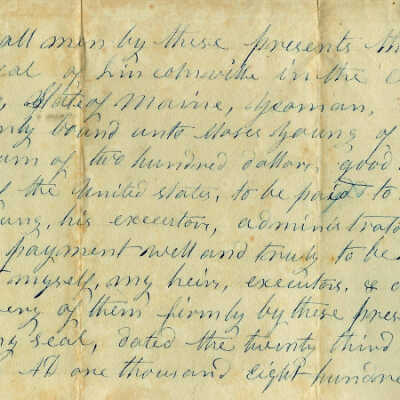 all men by these presents th
eal of Lincolnville in the C
State of Maine, Yeoman,
nly bound unto Moses Young of
um of two hundred dollars, good
f the United States, to be paid to
ung, his executors, administrato
payment well and truly to be
myself, my heirs, executors, & a
ery of them firmly by these pres
ng seal, dated the twenty third
AD one thousand eight hundre